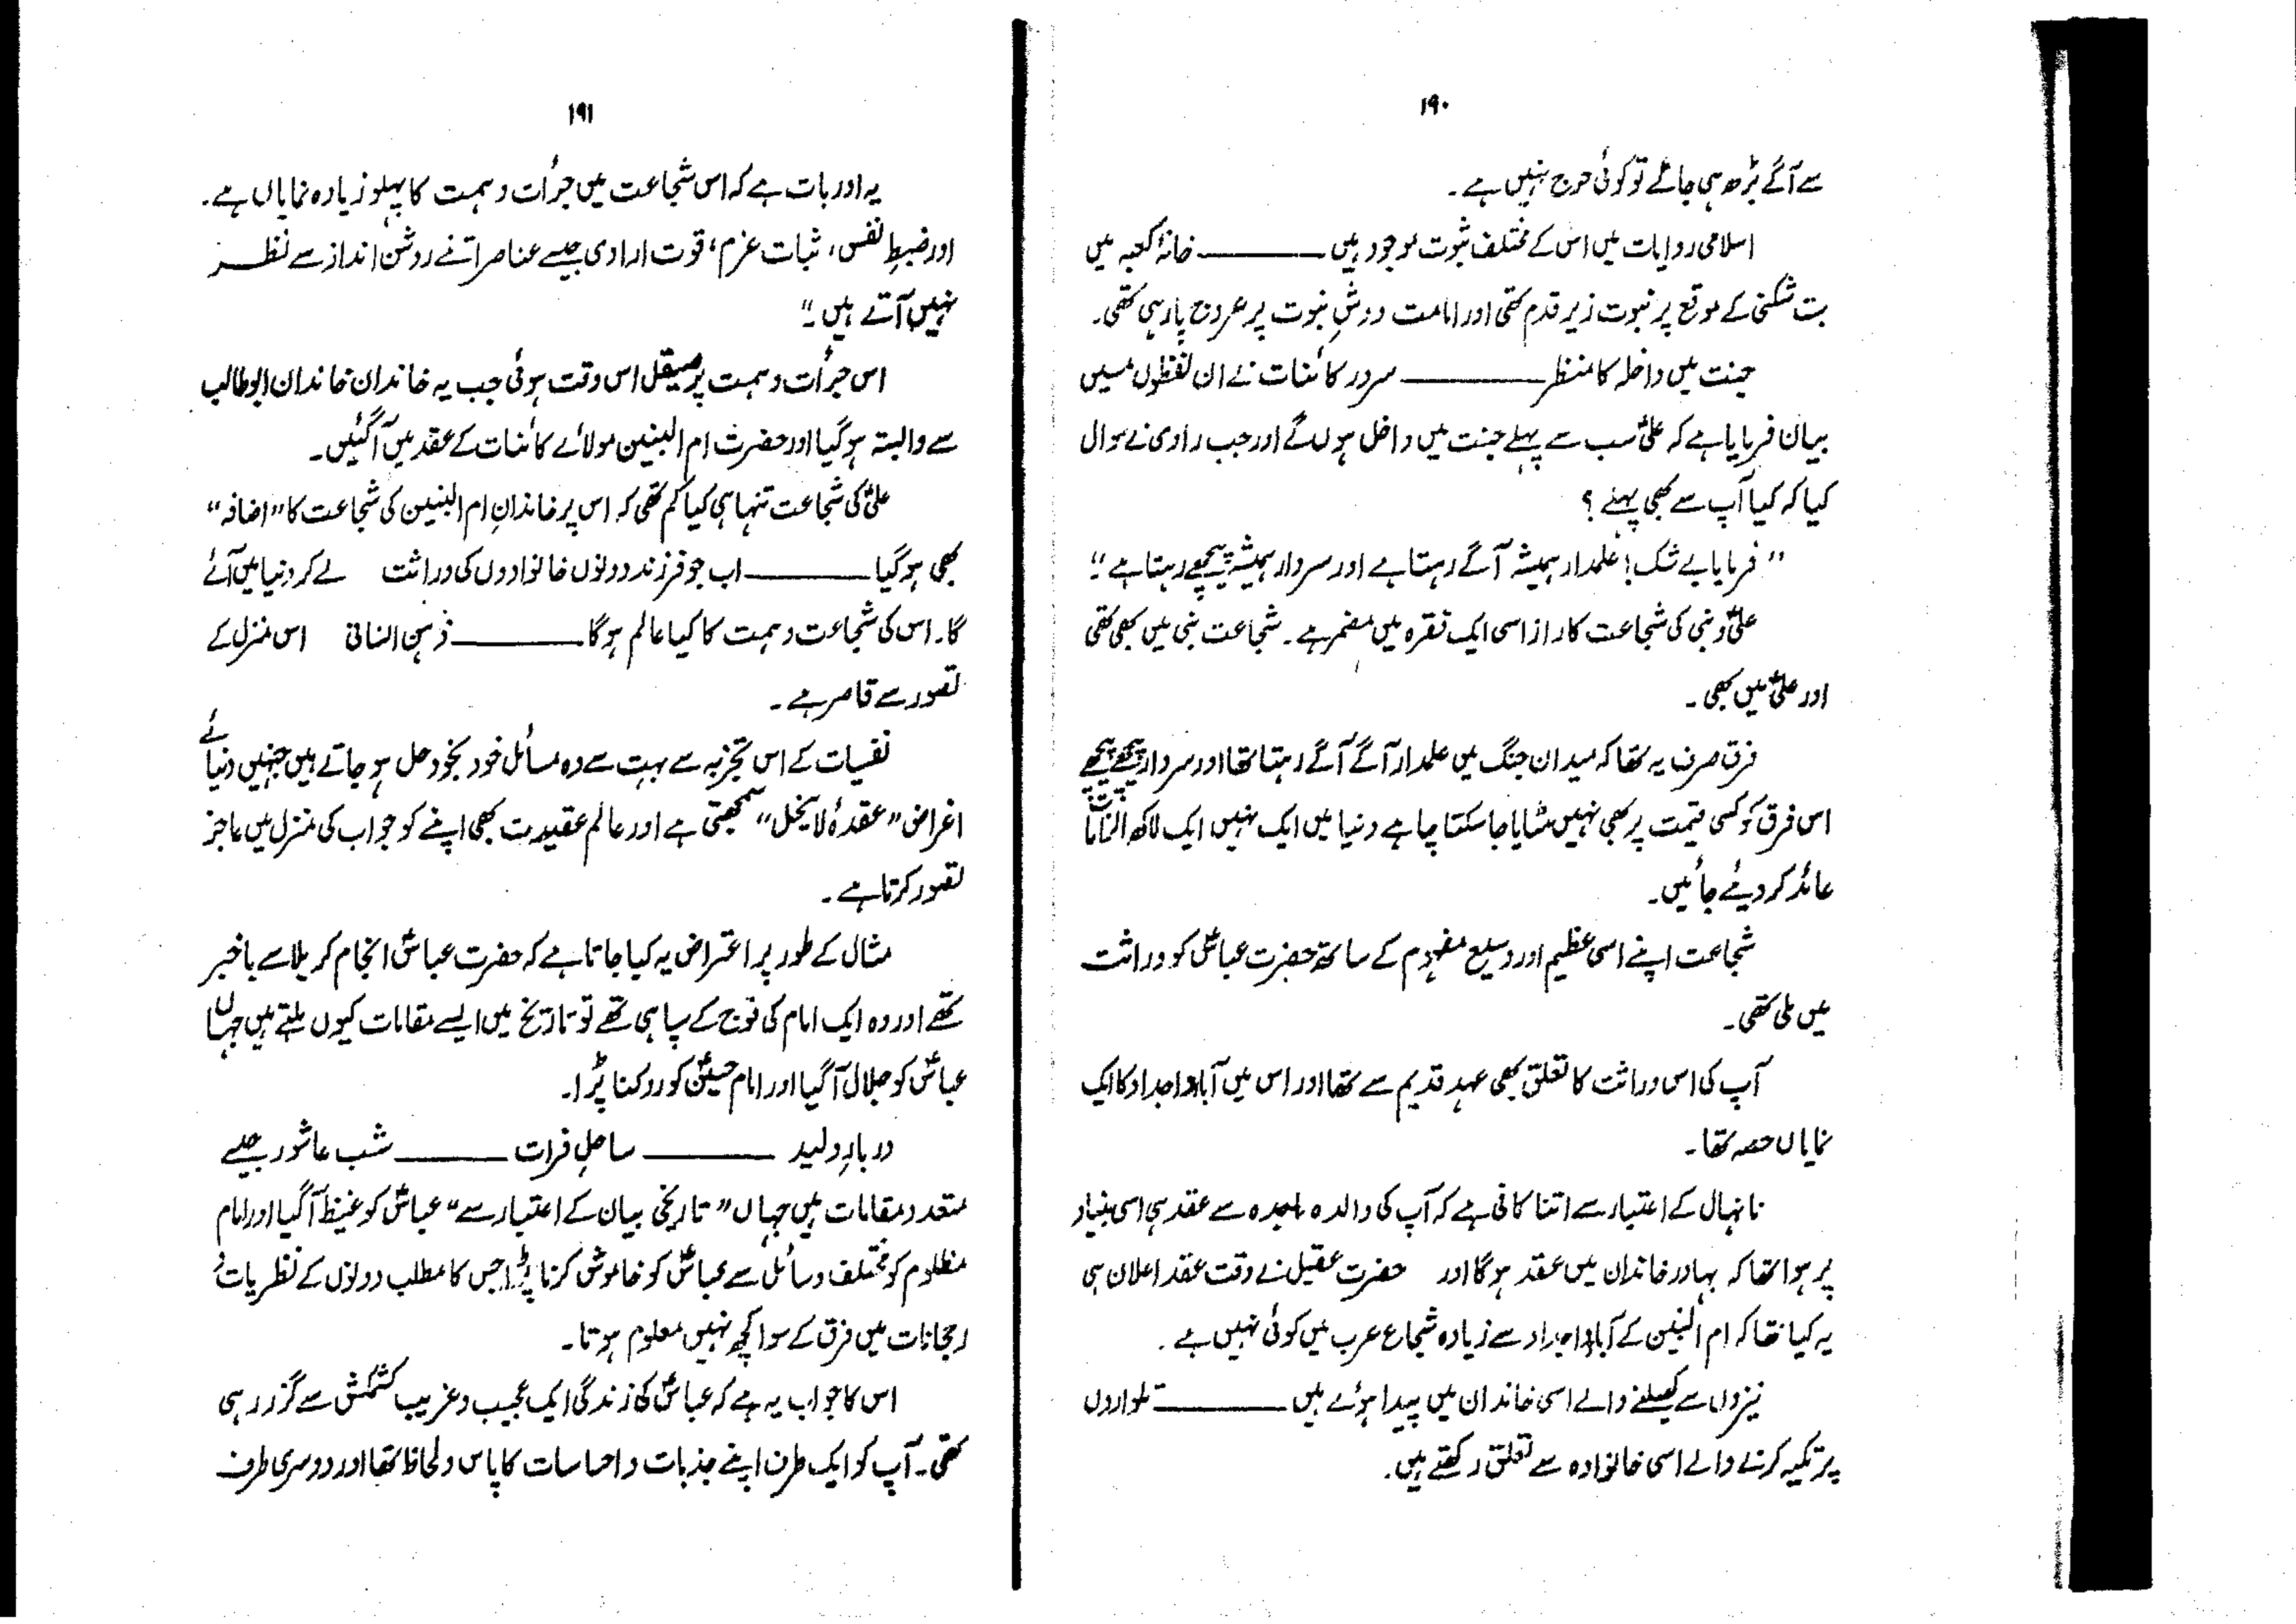 ۱۹۰
سے آگے بڑھ ہی جائے تو کوئی حرج نہیں ہے۔
اسلامی روایات میں اس کے مختلف ثبوت موجود ہیں ——— خانۂ کعبہ میں
بت شکنی کے موقع پر نبوت زیر قدم تھی اور امامت دوشِ نبوت پر عروج پا رہی تھی۔
جنت میں داخلہ کا منظر ——— سرور کائنات نے ان لفظوں میں
بیان فرمایا ہے کہ علیؑ سب سے پہلے جنت میں داخل ہوں گے اور جب راوی نے سوال
کیا کہ کیا آپ سے بھی پہلے ؟
" فرمایا بے شک! علمدار ہمیشہ آگے رہتا ہے اور سردار ہمیشہ پیچھے رہتا ہے "!
علیؑ و نبی کی شجاعت کا راز اسی ایک فقرہ میں مضمر ہے۔ شجاعت نبی میں بھی تھی
اور علیؑ میں بھی۔
فرق صرف یہ تھا کہ میدان جنگ میں علمدار آگے آگے رہتا تھا اور سردار پیچھے پیچھے
اس فرق کو کسی قیمت پر بھی نہیں مٹایا جا سکتا چاہے دنیا میں ایک نہیں ایک لاکھ التزامات
عائد کر دیئے جائیں۔
شجاعت اپنے اسی عظیم اور وسیع مفہوم کے ساتھ حضرت عباسؑ کو وراثت
میں ملی تھی۔
آپ کی اس وراثت کا تعلق بھی عہد قدیم سے تھا اور اس میں آباء و اجداد کا ایک
نمایاں حصہ تھا۔
نانہال کے اعتبار سے اتنا کافی ہے کہ آپ کی والدہ ماجدہ سے عقد ہی اسی بنیاد
پر ہوا تھا کہ بہادر خاندان میں عقد ہوگا اور حضرت عقیل نے وقت عقد اعلان ہی
یہ کیا تھا کہ ام البنین کے آباء و اجداد سے زیادہ شجاع عرب میں کوئی نہیں ہے۔
نیزوں سے کھیلنے والے اسی خاندان میں پیدا ہوئے ہیں ——— تلواروں
پر تکیہ کرنے والے اسی خانوادہ سے تعلق رکھتے ہیں۔
۱۹۱
یہ اور بات ہے کہ اس شجاعت میں جرأت و ہمت کا پہلو زیادہ نمایاں ہے۔
اور ضبطِ نفس، ثبات عزم، قوت ارادی جیسے عناصر اتنے روشن انداز سے نظر
نہیں آتے ہیں۔"
اس جرأت و ہمت پر صیقل اس وقت ہوئی جب یہ خاندان خاندان ابوطالب
سے وابستہ ہوگیا اور حضرت ام البنین مولائے کائنات کے عقد میں آگئیں۔
علیؑ کی شجاعت تنہا ہی کیا کم تھی کہ اس پر خاندانِ ام البنین کی شجاعت کا "اضافہ"
بھی ہوگیا ——— اب جو فرزند دونوں خانوادوں کی وراثت لے کر دنیا میں آئے
گا۔ اس کی شجاعت و ہمت کا کیا عالم ہوگا ——— ذہن انسانی اس منزل کے
تصور سے قاصر ہے۔
نفسیات کے اس تجزیہ سے بہت سے وہ مسائل خود بخود حل ہو جاتے ہیں جنہیں دنیائے
اغراض "عقدۂ لاینحل" سمجھتی ہے اور عالم عقیدت بھی اپنے کو جواب کی منزل میں عاجز
تصور کرتا ہے۔
مثال کے طور پر اعتراض یہ کیا جاتا ہے کہ حضرت عباسؑ انجام کربلا سے باخبر
تھے اور وہ ایک امام کی فوج کے سپاہی تھے تو تاریخ میں ایسے مقامات کیوں ملتے ہیں جہاں
عباسؑ کو جلال آگیا اور امام حسینؑ کو روکنا پڑا۔
دربارِ ولید ——— ساحلِ فرات ——— شب عاشور جیسے
متعدد مقامات ہیں جہاں "تاریخی بیان کے اعتبار سے" عباسؑ کو غیظ آگیا اور امام
مظلوم کو مختلف وسائل سے عباسؑ کو خاموش کرنا پڑا جس کا مطلب دونوں کے نظریات و
رجحانات میں فرق کے سوا کچھ نہیں معلوم ہوتا۔
اس کا جواب یہ ہے کہ عباسؑ کی زندگی ایک عجیب و غریب کشمکش سے گزر رہی
تھی۔ آپ کو ایک طرف اپنے جذبات و احساسات کا پاس و لحاظ تھا اور دوسری طرف